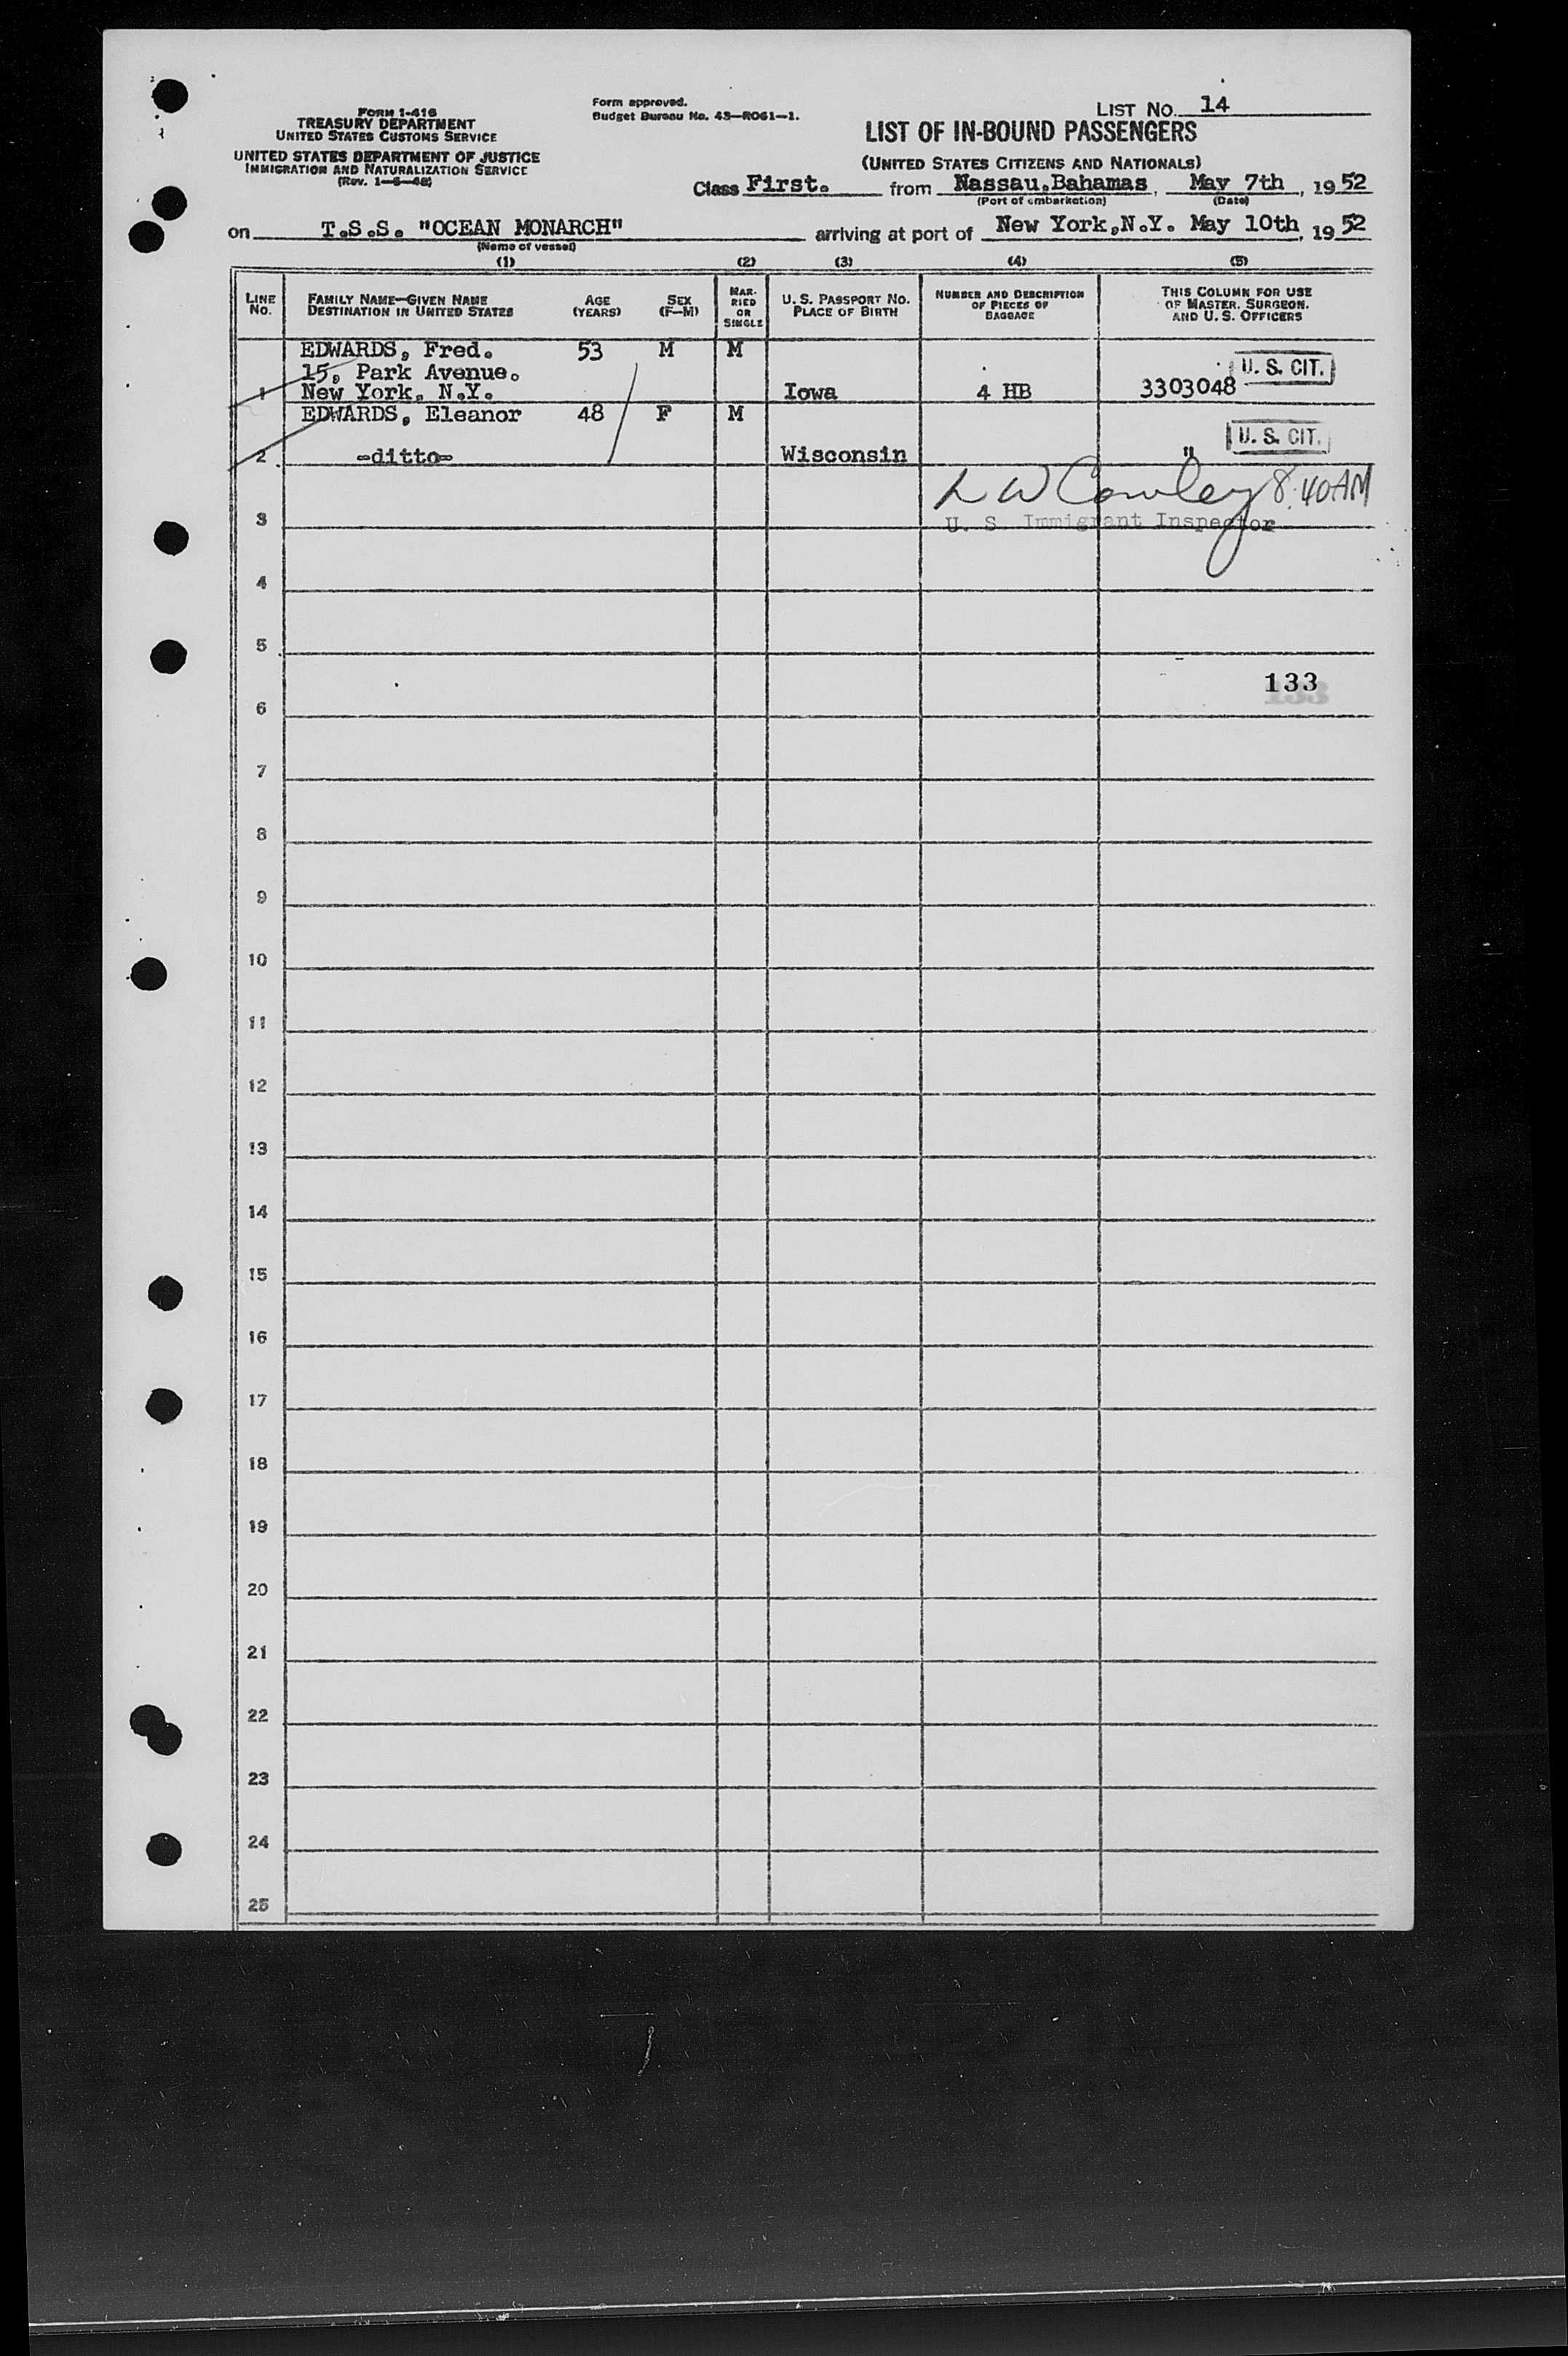 Form I-416
TREASURY DEPARTMENT
UNITED STATES CUSTOMS SERVICE
UNITED STATES DEPARTMENT OF JUSTICE
IMMIGRATION AND NATURALIZATION SERVICE
(Rev. 1-6-48)
Form approved.
Budget Bureau No. 43-R061-1.
LIST No. 14
LIST OF IN-BOUND PASSENGERS
(UNITED STATES CITIZENS AND NATIONALS)
Class First. from Nassau.Bahamas, May 7th, 1952
(Port of embarkation) (Date)
on T.S.S. "OCEAN MONARCH" arriving at port of New York,N.Y. May 10th, 1952
(Name of vessel)
(1) (2) (3) (4) (5)
LINE No. FAMILY NAME—GIVEN NAME DESTINATION IN UNITED STATES AGE (YEARS) SEX (F—M) MARRIED OR SINGLE U. S. PASSPORT No. PLACE OF BIRTH NUMBER AND DESCRIPTION OF PIECES OF BAGGAGE THIS COLUMN FOR USE OF MASTER, SURGEON, AND U. S. OFFICERS
EDWARDS, Fred. 53 M M
15, Park Avenue. U. S. CIT.
1 New York, N.Y. Iowa 4 HB 3303048
EDWARDS, Eleanor 48 F M
2 -ditto- Wisconsin " U. S. CIT.
L W Cowley 8:40AM
3 U. S. Immigrant Inspector
4
5
133
6
7
8
9
10
11
12
13
14
15
16
17
18
19
20
21
22
23
24
25